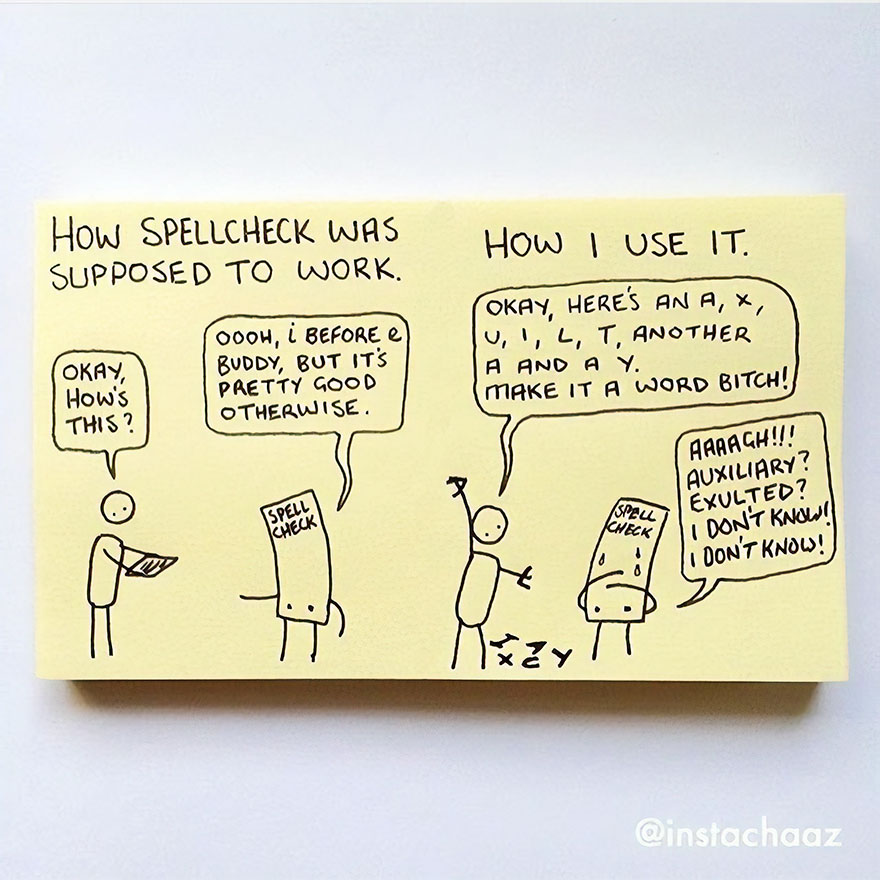 HOW SPELLCHECK WAS
SUPPOSED TO WORK.
OKAY,
HOW'S
THIS?
OOOH, i BEFORE e
BUDDY, BUT IT'S
PRETTY GOOD
OTHERWISE.
SPELL
CHECK
HOW I USE IT.
OKAY, HERE'S AN A, X,
U, I, L, T, ANOTHER
A AND A Y.
MAKE IT A WORD BITCH!
AAAAGH!!!
AUXILIARY?
EXULTED?
I DON'T KNOW!
I DON'T KNOW!
SPELL
CHECK
X Z Y
@instachaaz